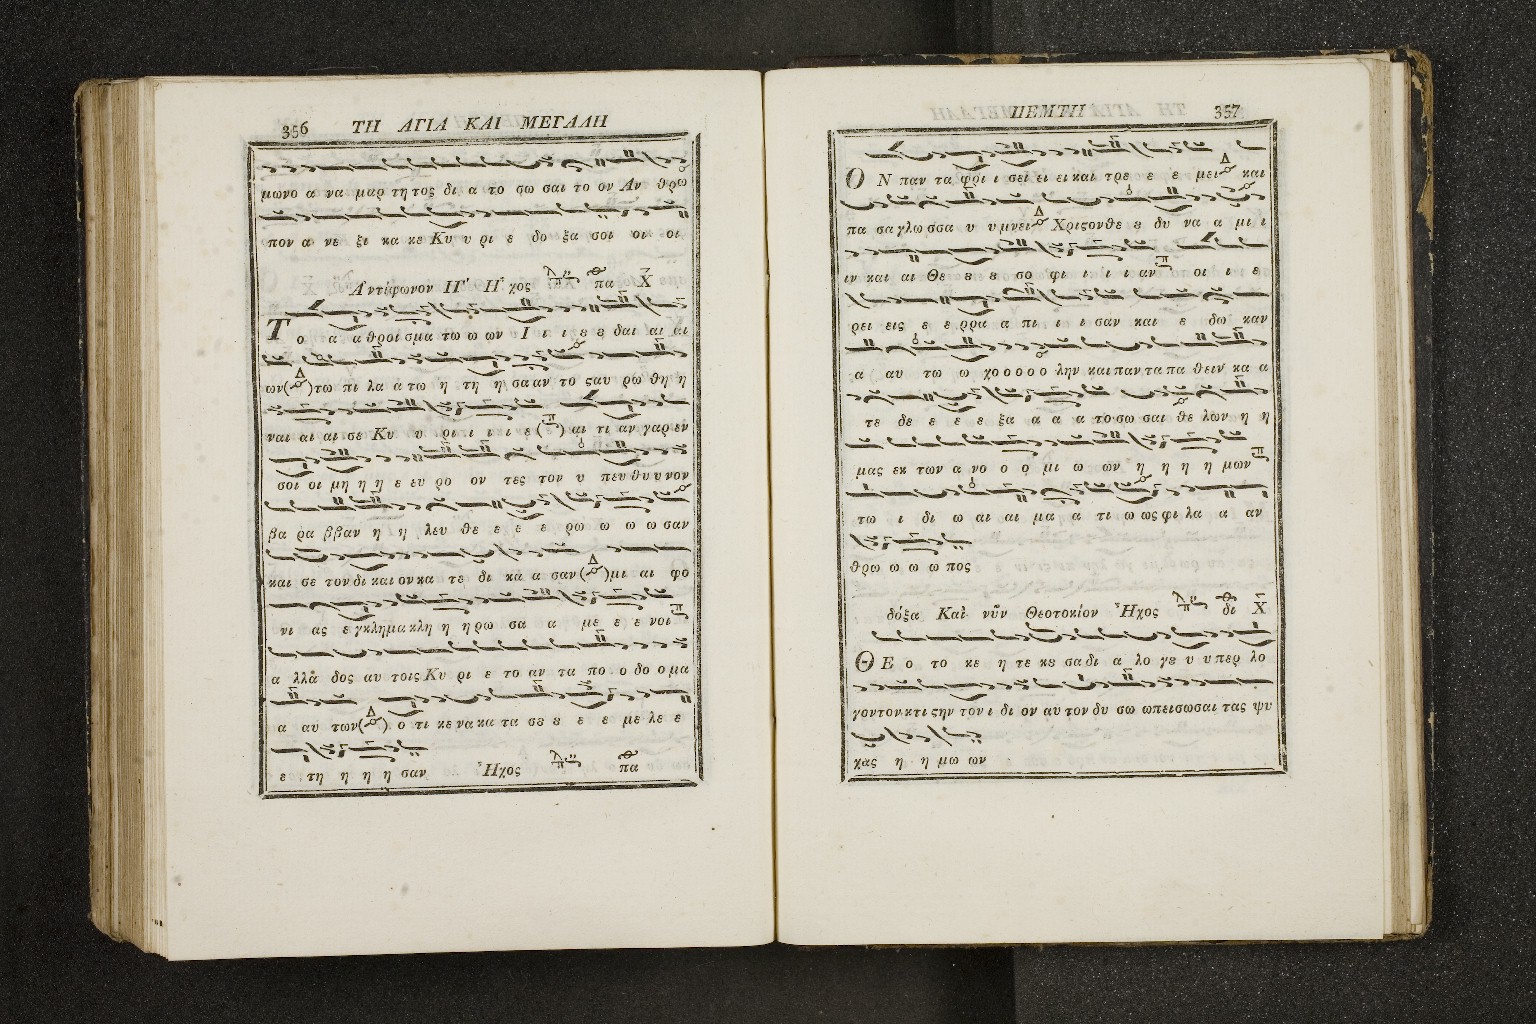 356 ΤΗ ΑΓΙΑ ΚΑΙ ΜΕΓΑΛΗ
μωνο α να μαρ τη τος δι α το σω σαι το ον Αν θρω
πον α νε ξι κα κε Κυ υ ρι ε δο ξα σοι οι οι
Ἀντίφωνον Η' Ἦχος πα Χ
Το α α θροι σμα τω ω ων Ι ι ι ε ε δαι αι αι
ων(Δ)τω πι λα ά τω η τη η σα αν το ςαυ ρω θη η
ναι αι αι σε Κυ υ ρι ι ι ι ε(π) αι τι αν γαρ εν
σοι οι μη η η ε ευ ρο ον τες τον υ πευ θυ υ νον
βα ρα ββαν η η λευ θε ε ε ε ρω ω ω ω σαν
και σε τον δι και ον κα τε δι κα α σαν(Δ)μι αι φο
νι ας ε γκλημα κλη η η ρω σα α με ε ε νοι π
α λλὰ δος αυ τοις Κυ ρι ε το αν τα πο ο δο ο μα
α αυ των(Δ) ο τι κε να κα τα σȣ ȣ ε ε με λε ε
ε τη η η η σαν Ἦχος πα
ΠΕΜΤΗ 357
ΟΝ παν τα φρι ι σει ει ει και τρε ε ε ε μει Δ και
πα σα γλω σσα υ υ μνει Δ Χριςον θε ȣ δυ να α μι ι
ιν και αι Θε ȣ ȣ ȣ σο φι ι ι ι αν π οι ι ε
ρει εις ε ε ρρα α πι ι ι σαν και ε δω καν
α αυ τω ω χο ο ο ο ο λην και παν τα πα θειν κα α
τε δε ε ε ε ξα α α α το σω σαι θε λων η η
μας εκ των α νο ο ο μι ω ων η η η η μων π
τω ι δι ω αι αι μα α τι ω ως φι λα α αν
θρω ω ω ω πος
δόξα Καὶ νῦν Θεοτοκίον Ἦχος δι Χ
ΘΕ ο το κε η τε κȣ σα δι α λο γȣ υ υ περ λο
γον τον κτι ςην τον ι δι ον αυ τον δυ σω ω πει σω σαι τας ψυ
χας η η μω ων